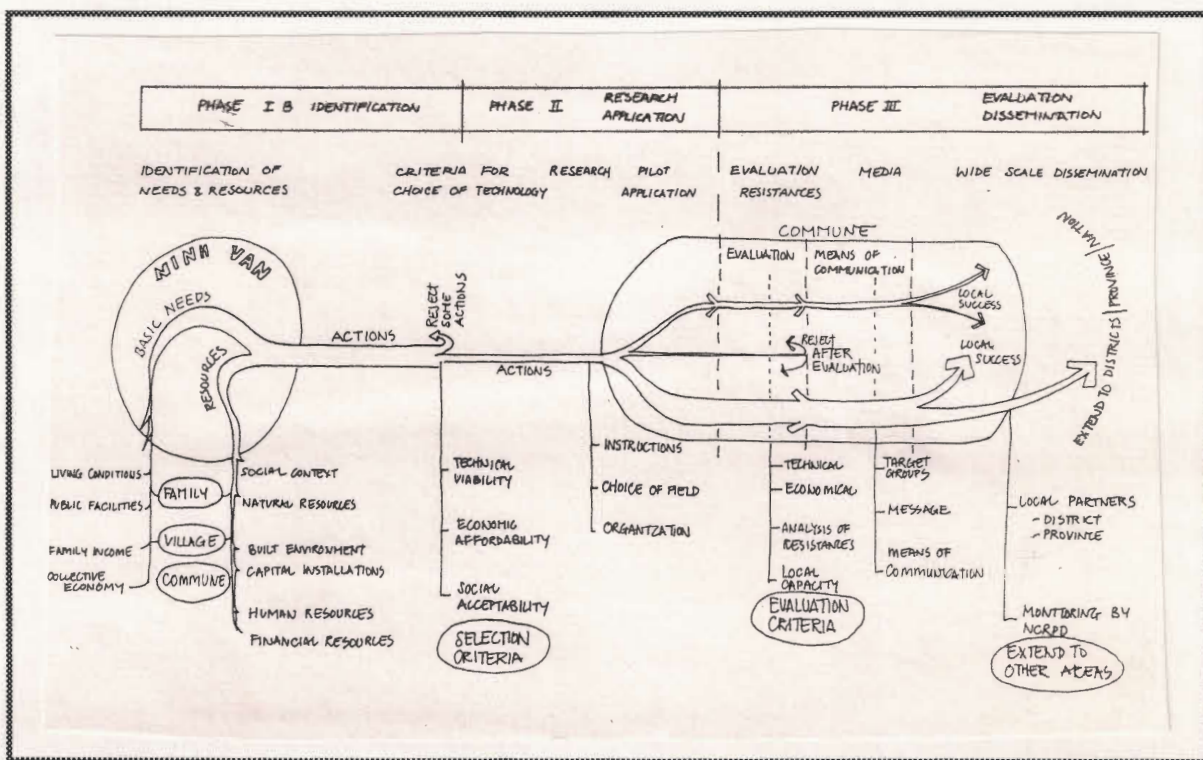 PHASE I B IDENTIFICATION
PHASE II
RESEARCH
APPLICATION
PHASE III
EVALUATION
DISSEMINATION
IDENTIFICATION OF
NEEDS & RESOURCES
CRITERIA FOR
CHOICE OF TECHNOLOGY
RESEARCH
PILOT
APPLICATION
EVALUATION
RESISTANCES
MEDIA
WIDE SCALE DISSEMINATION
NINH VAN
BASIC NEEDS
RESOURCES
ACTIONS
REJECT
SOME
ACTIONS
ACTIONS
COMMUNE
EVALUATION
MEANS OF
COMMUNICATION
LOCAL
SUCCESS
REJECT
AFTER
EVALUATION
LOCAL
SUCCESS
EXTEND TO DISTRICTS | PROVINCE / NATION
LIVING CONDITIONS
PUBLIC FACILITIES
FAMILY INCOME
COLLECTIVE
ECONOMY
FAMILY
VILLAGE
COMMUNE
SOCIAL CONTEXT
NATURAL RESOURCES
BUILT ENVIRONMENT
CAPITAL INSTALLATIONS
HUMAN RESOURCES
FINANCIAL RESOURCES
TECHNICAL
VIABILITY
ECONOMIC
AFFORDABILITY
SOCIAL
ACCEPTABILITY
SELECTION
CRITERIA
INSTRUCTIONS
CHOICE OF FIELD
ORGANTZATION
TECHNICAL
ECONOMICAL
ANALYSIS OF
RESISTANCES
LOCAL
CAPACITY
EVALUATION
CRITERIA
TARGET
GROUPS
MESSAGE
MEANS OF
COMMUNICATION
LOCAL PARTNERS
- DISTRICT
- PROVINCE
MONITORING BY
NCRPD
EXTEND TO
OTHER AREAS